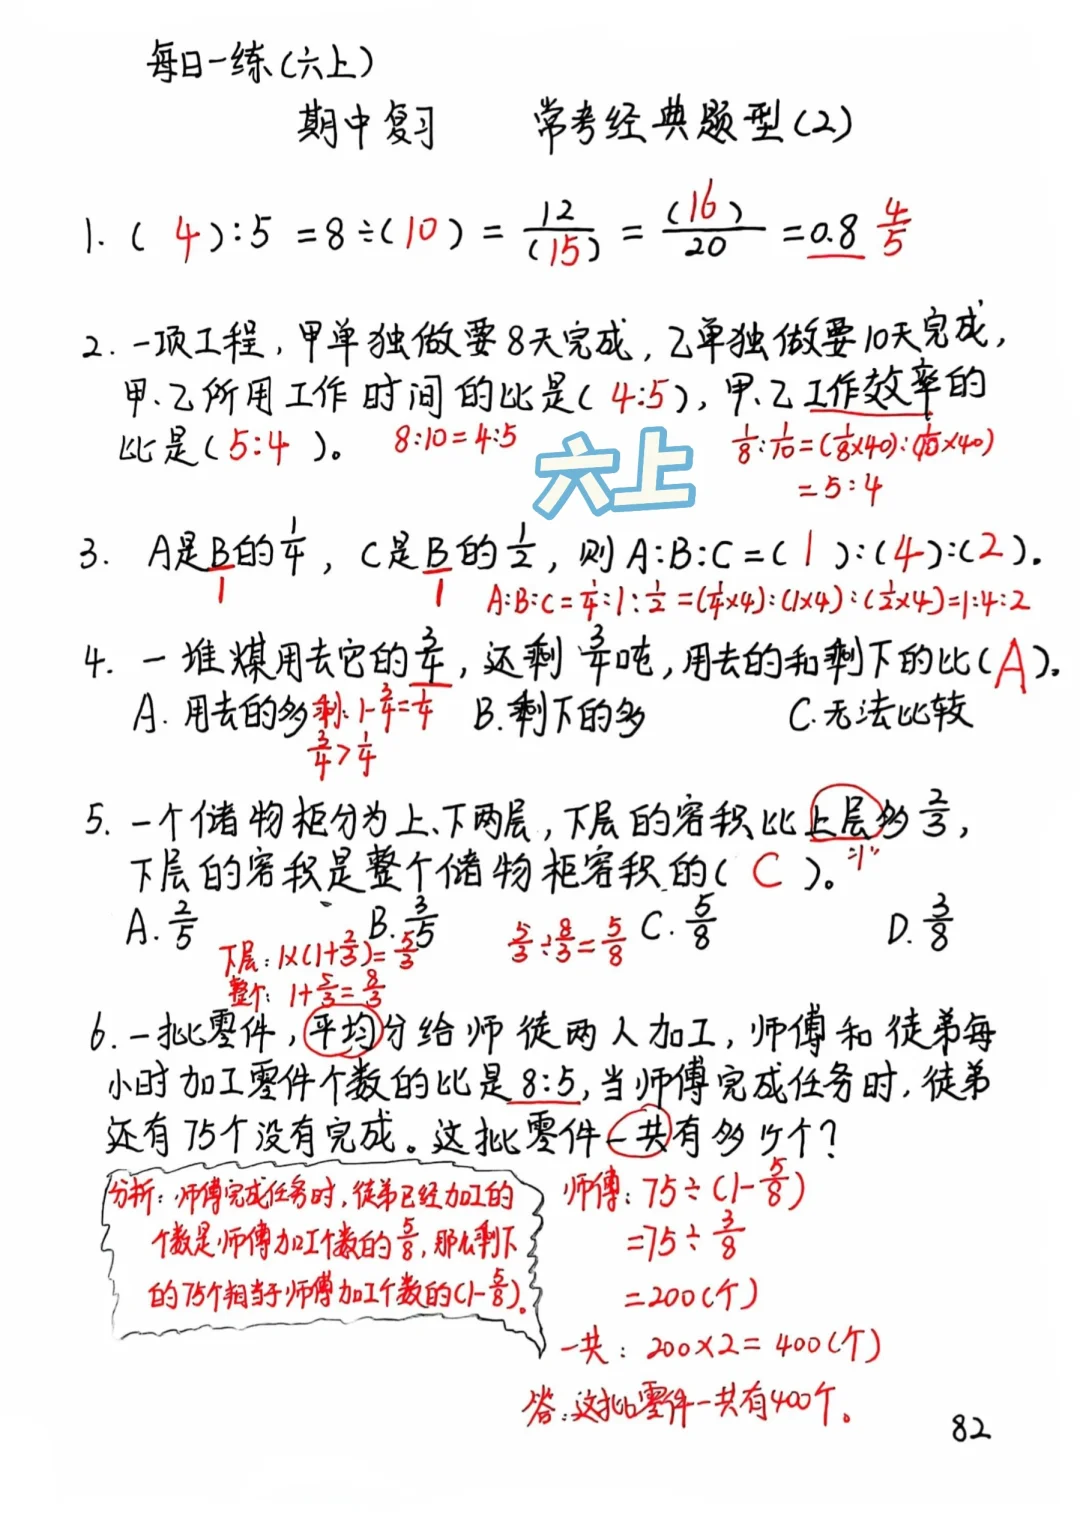 每日一练(六上)
期中复习 常考经典题型(2)
1. ( 4 ):5 = 8÷(10) = 12/(15) = (16)/20 = 0.8 4/5
2. 一项工程,甲单独做要8天完成,乙单独做要10天完成,
甲、乙所用工作时间的比是(4:5),甲、乙工作效率的
比是(5:4)。 8:10=4:5 1/8:1/10=(1/8×40):(1/10×40)
=5:4
六上
3. A是B的1/4,C是B的1/2,则A:B:C=(1):(4):(2).
1 1 A:B:C=1/4:1:1/2=(1/4×4):(1×4):(1/2×4)=1:4:2
4. 一堆煤用去它的3/4,还剩3/4吨,用去的和剩下的比(A).
A. 用去的多 剩:1-3/4=1/4 B.剩下的多 C.无法比较
3/4>1/4
5. 一个储物柜分为上、下两层,下层的容积比上层多2/3,
"1"
下层的容积是整个储物柜容积的( C )。
A. 2/5 B. 3/5 5/3÷8/3=5/8 C. 5/8 D. 3/8
下层:1×(1+2/3)=5/3
整个:1+5/3=8/3
6. 一批零件,平均分给师徒两人加工,师傅和徒弟每
小时加工零件个数的比是8:5,当师傅完成任务时,徒弟
还有75个没有完成。这批零件一共有多少个?
分析:师傅完成任务时,徒弟已经加工的
个数是师傅加工个数的5/8,那么剩下
的75个相当于师傅加工个数的(1-5/8)。
师傅:75÷(1-5/8)
=75÷3/8
=200(个)
一共:200×2=400(个)
答:这批零件一共有400个。
82